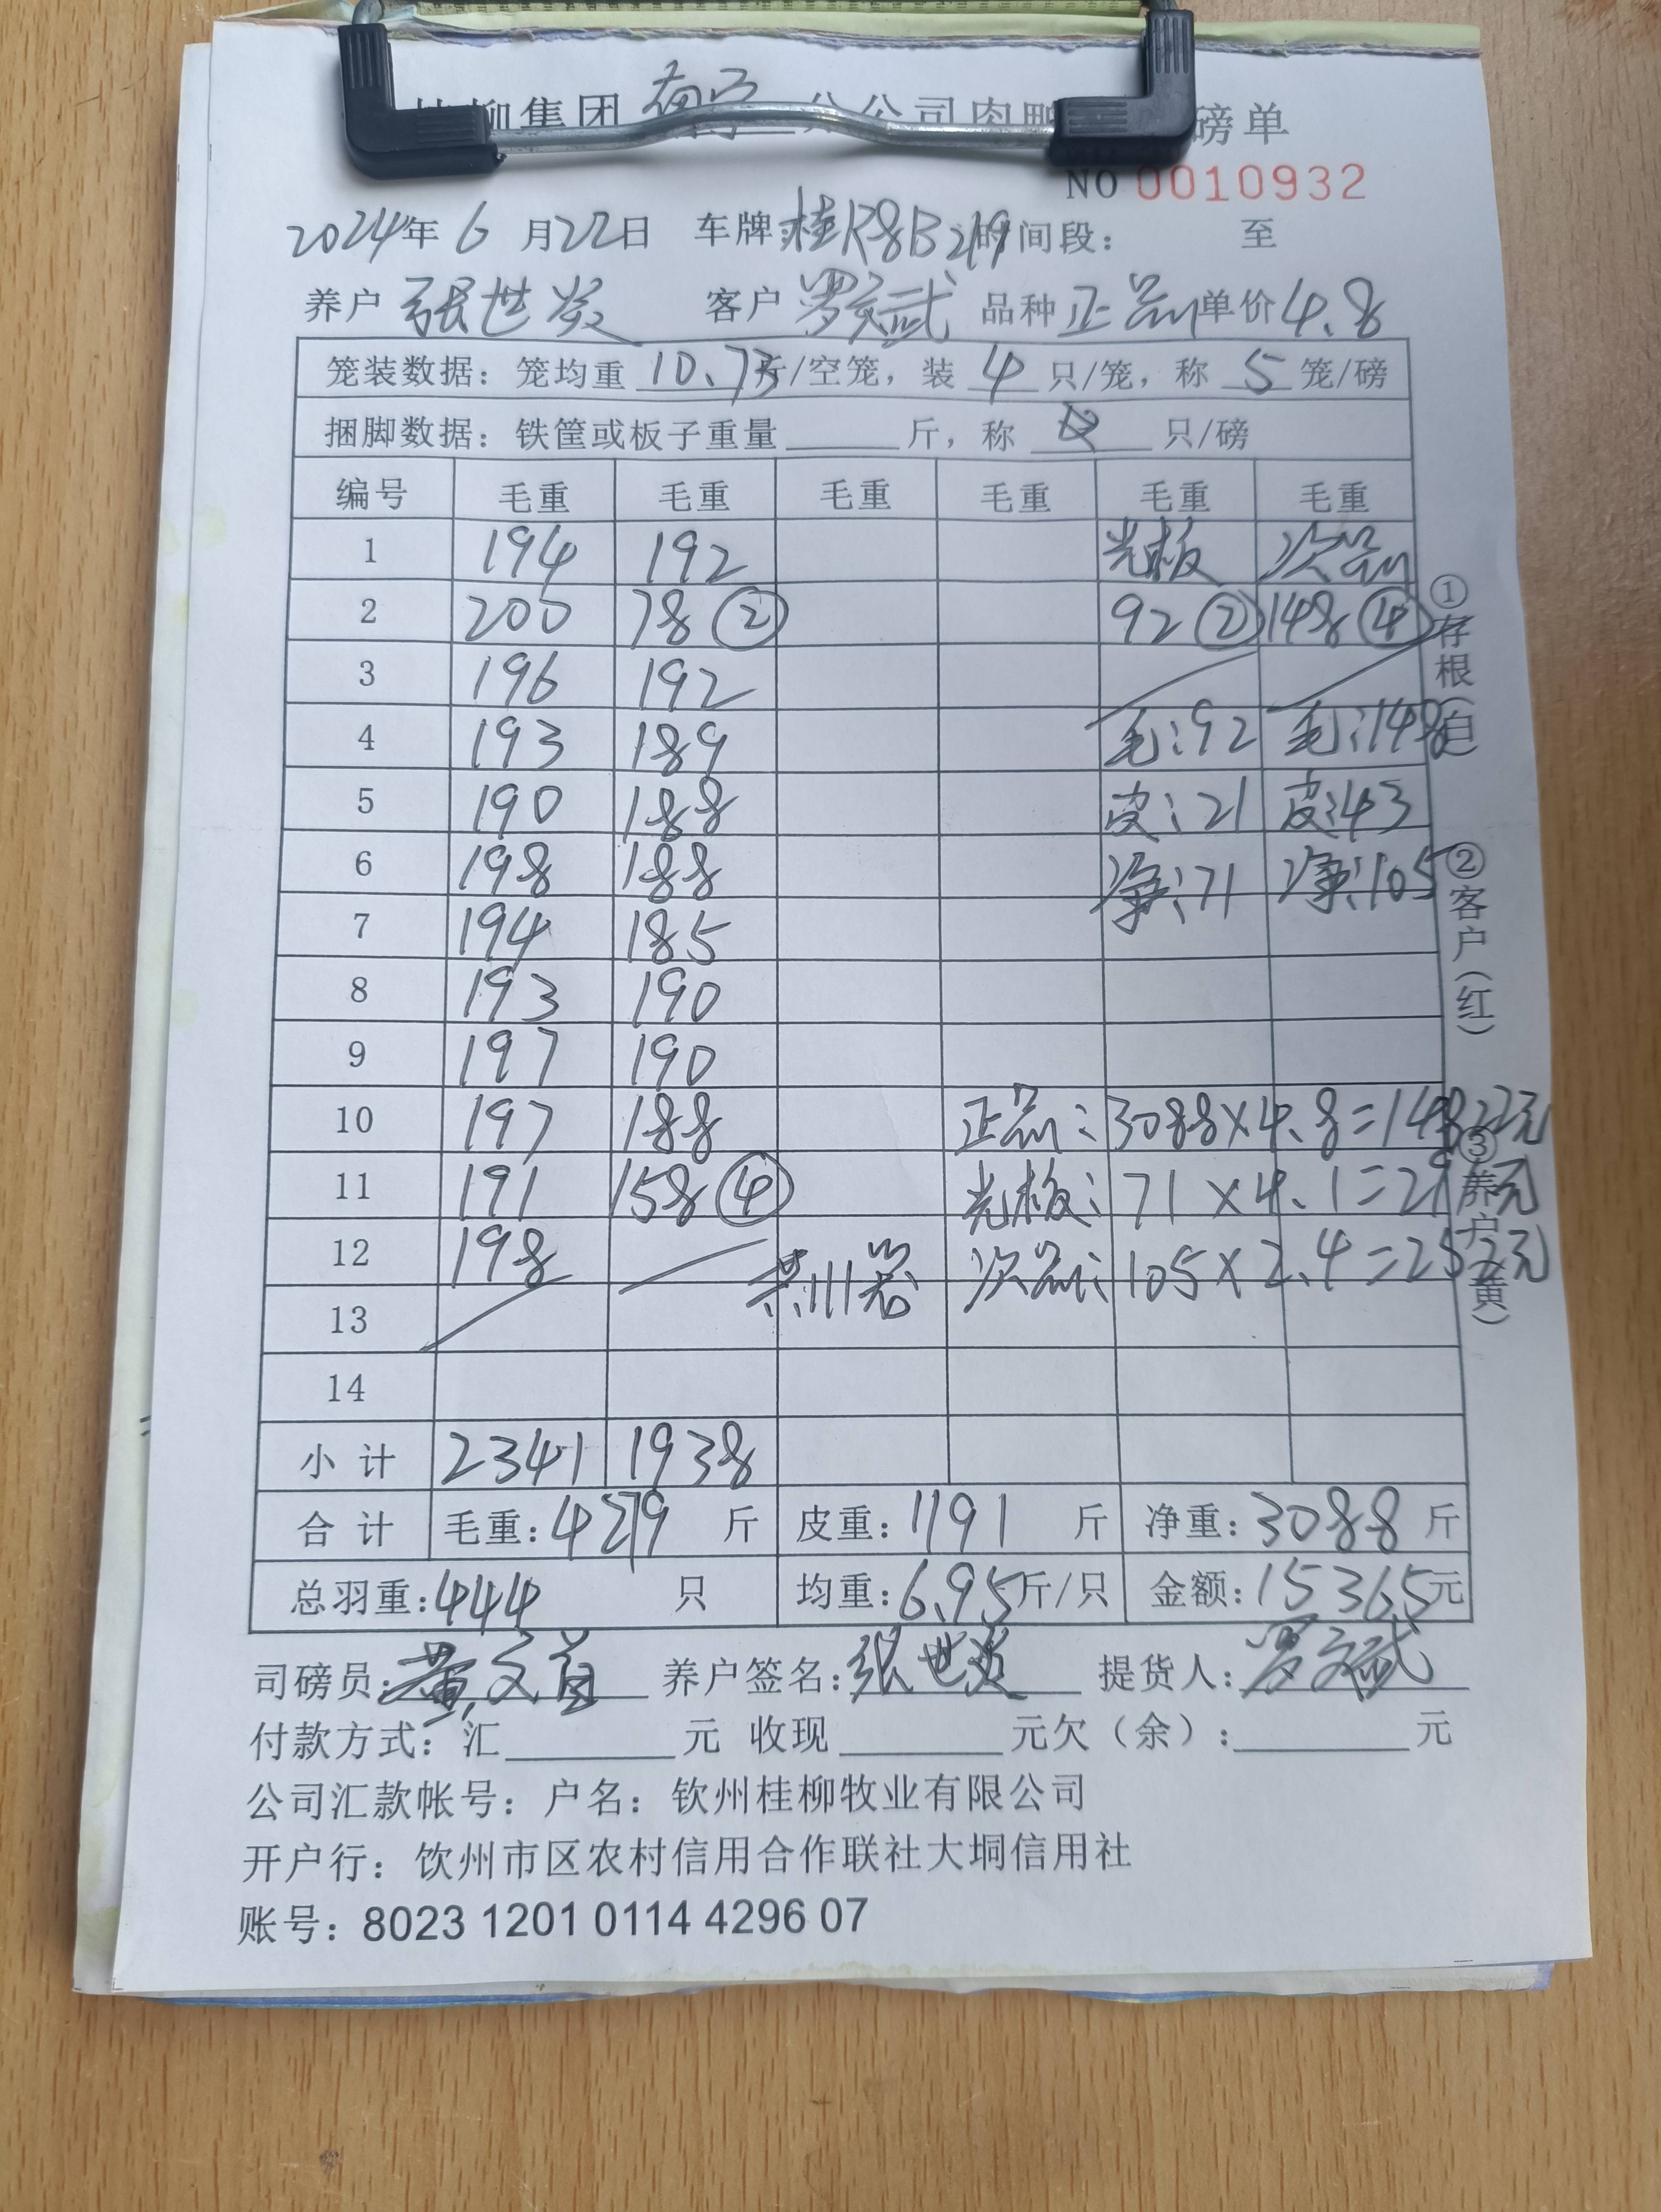 柳集团 南宁 分公司肉鸭 磅单
NO 0010932
2024年 6 月22日 车牌:桂R8B219 时间段: 至
养户 张世炎 客户 罗文武 品种 正品 单价 4.8
笼装数据: 笼均重 10.73 斤/空笼, 装 4 只/笼, 称 5 笼/磅
捆脚数据: 铁筐或板子重量 斤, 称 只/磅
编号 毛重 毛重 毛重 毛重 毛重 毛重
1 194 192 光板 次品
2 200 78 ② 92 ② 148 ④
3 196 192
4 193 189 毛:92 毛:148
5 190 188 皮:21 皮:43
6 198 188 净:71 净:105
7 194 185
8 193 190
9 197 190
10 197 188 正品: 3088×4.8=14822元
11 191 158 ④ 光板: 71×4.1=291元
12 198 共111笼 次品: 105×2.4=252元
13
14
小 计 2341 1938
合 计 毛重:4279 斤 皮重:1191 斤 净重:3088 斤
总羽重:444 只 均重:6.95斤/只 金额:15365元
司磅员: 黄文 养户签名:张世炎 提货人:罗文武
付款方式: 汇 元 收现 元欠(余): 元
公司汇款帐号: 户名: 钦州桂柳牧业有限公司
开户行: 饮州市区农村信用合作联社大垌信用社
账号: 8023 1201 0114 4296 07
①存根(白) ②客户(红) ③养户(黄)